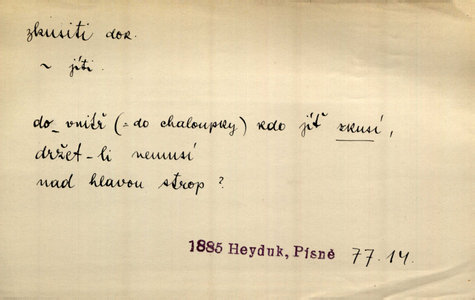 zkusiti dok.
~ jíti.
do_vnitř (= do chaloupky) kdo jíť zkusí,
držet-li nemusí
nad hlavou strop?
1885 Heyduk, Písně 77.14.